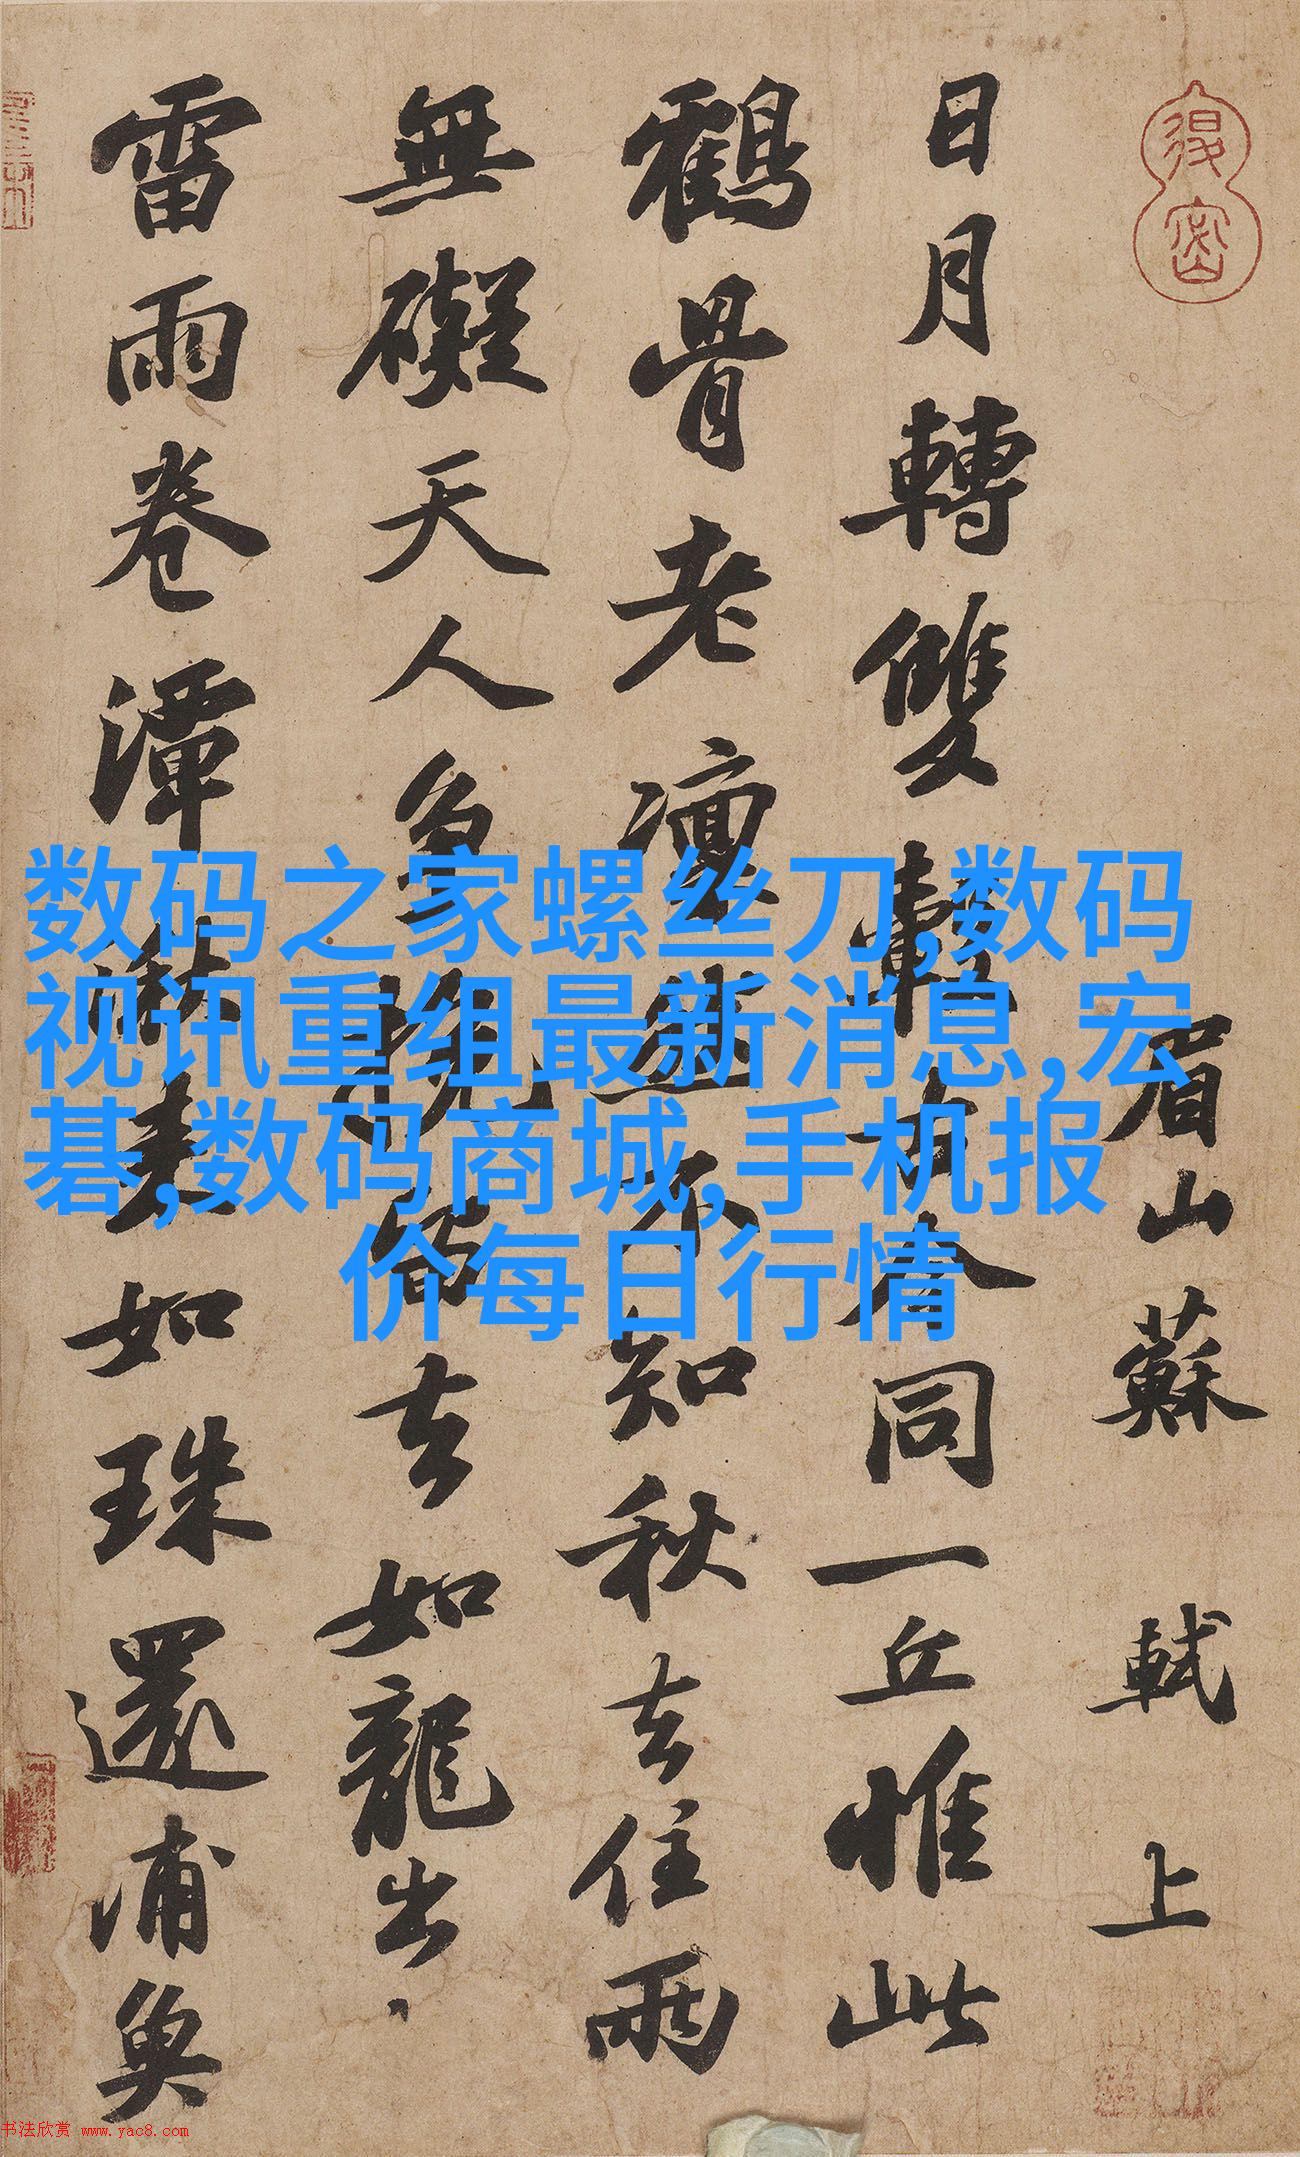 眉山蘇軾上
日月轉雙轂古今同一丘惟此
鶴骨老凜然不知秋去住兩
無礙天人爭挽留去如龍出
雷雨卷潭湫來如珠還浦魚
数码之家螺丝刀,数码
视讯重组最新消息,宏
碁,数码商城,手机报
价每日行情
书法欣赏 www.yac8.com